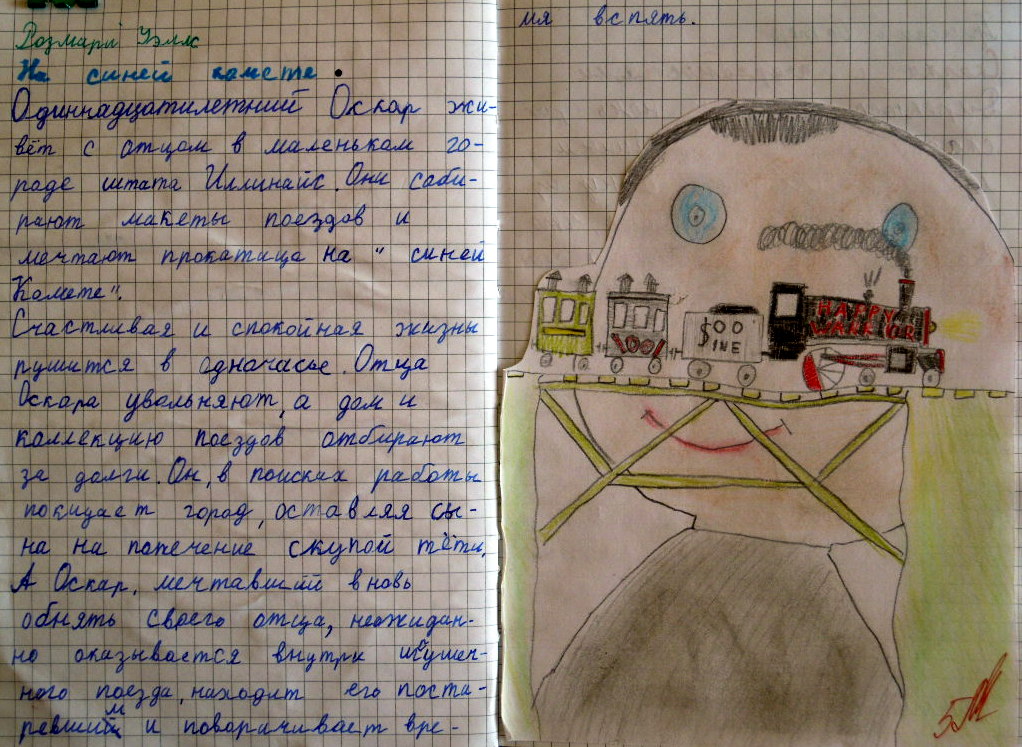 Розмари Уэллс
На синей комете.
Одиннадцатилетний Оскар жи-
вёт с отцом в маленьком го-
роде штата Иллинойс. Они соби-
рают макеты поездов и
мечтают прокатица на "синей
Комете".
Счастливая и спокойная жизнь
рушится в одночасье. Отца
Оскара увольняют, а дом и
коллекцию поездов отбирают
за долги. Он, в поисках работы
покидает город, оставляя сы-
на на попечение скупой тёти.
А Оскар, мечтавший вновь
обнять своего отца, неожидан-
но оказывается внутри игрушеч-
ного поезда, находит его поста-
ревшим и поворачивает вре-
мя вспять.
HAPPY
WARRIOR
SOO
LINE
1001
5